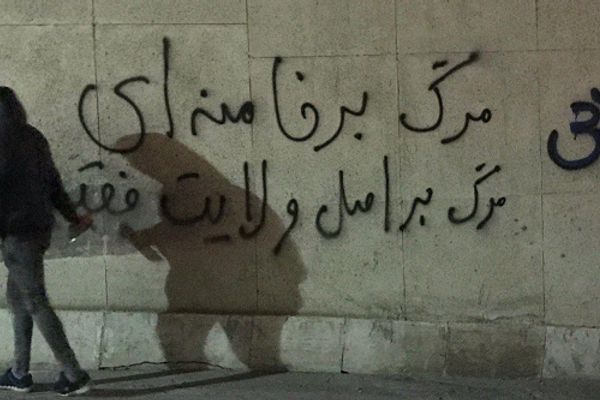 مرگ بر خامنه ای
مرگ بر اصل ولایت فقیـ